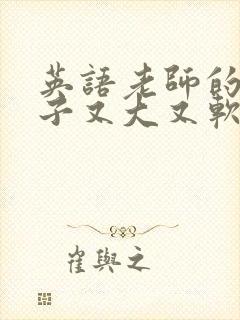 英語老師的
子又大又軟
崔與之